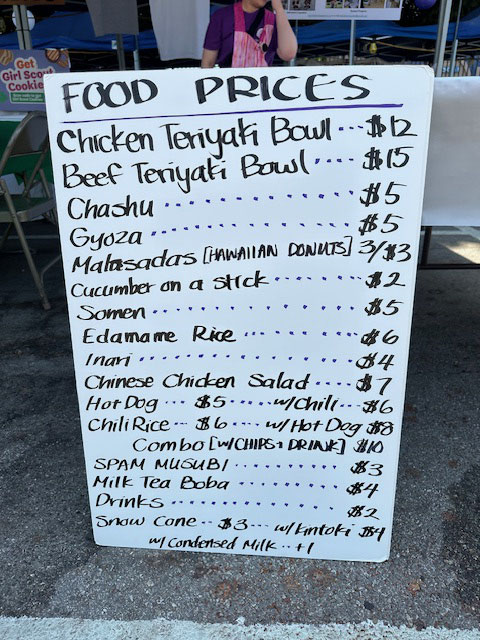 Get
Girl Scout
Cookies
FOOD PRICES
Chicken Teriyaki Bowl ... $12
Beef Teriyaki Bowl .... $15
Chashu .......... $5
Gyoza .......... $5
Malasadas [HAWAIIAN DONUTS] 3/$3
Cucumber on a stick ....... $2
Somen .......... $5
Edamame Rice .......... $6
Inari .......... $4
Chinese Chicken Salad .... $7
Hot Dog ... $5 ..... w/Chili ... $6
Chili Rice ... $6 .... w/Hot Dog $8
Combo [w/CHIPS + DRINK] $10
SPAM MUSUBI .......... $3
Milk Tea Boba .......... $4
Drinks .......... $2
Snow Cone .. $3 ... w/Kintoki $4
w/Condensed Milk .. +1